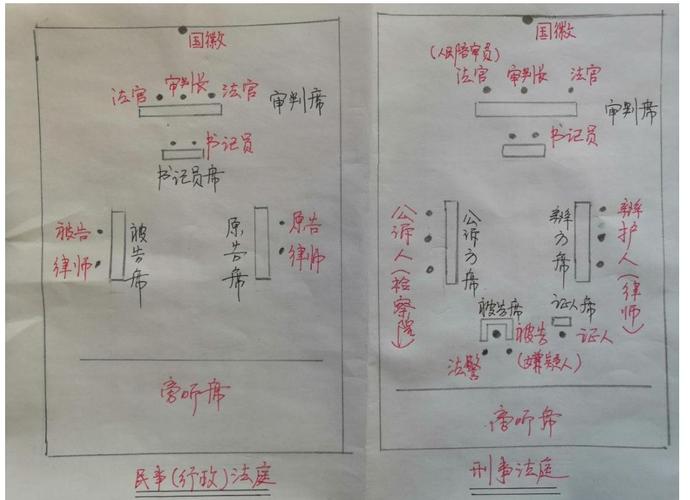 国徽
法官 审判长 法官
审判席
书记员
书记员席
被告
律师
被告席
原告席
原告
律师
旁听席
民事(行政)法庭
国徽
(人民陪审员)
法官 审判长 法官
审判席
书记员
公诉人(检察院)
公诉方席
辩方席
辩护人(律师)
被告席
证人席
被告
(嫌疑人)
证人
法警
旁听席
刑事法庭